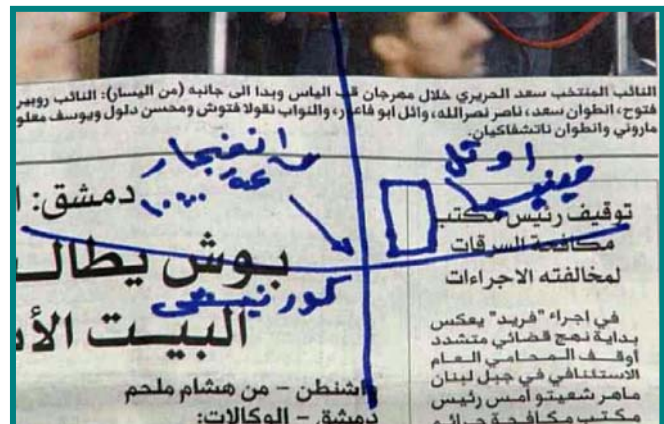 النائب المنتخب سعد الحريري خلال مهرجان قب الياس وبدا الى جانبه (من اليسار): النائب روبير
فتوح، انطوان سعد، ناصر نصرالله، وائل ابو فاعور، والنواب نقولا فتوش ومحسن دلول ويوسف معلو
ماروني وانطوان ناتشفاكيان.
اوتل
فينيسيا
انفجار
توقيف رئيس مكتب
مكافحة السرقات
لمخالفته الاجراءات
في إجراء "فريد" يعكس
بداية نهج قضائي متشدد
أوقف المحامي العام
الاستئنافي في جبل لبنان
ماهر شعيتو أمس رئيس
مكتب مكافحة جرائم
دمشق:
بوش يطالب
كورنيش
البيت
واشنطن - من هشام ملحم
دمشق - الوكالات: